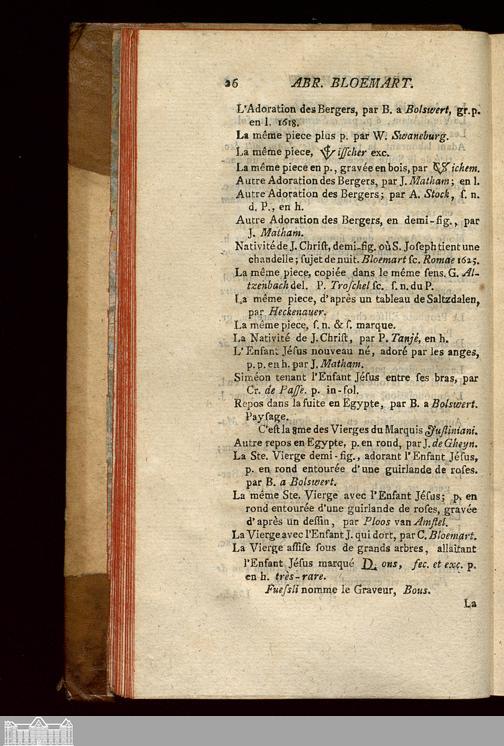 26 ABR. BLOEMART.
L'Adoration des Bergers, par B. a Bolswert, gr. p.
en l. 1618.
La méme piece plus p. par W. Swaneburg.
La méme piece, Viſſcher exc.
La méme piece en p., gravée en bois, par ichem.
Autre Adoration des Bergers, par J. Matham; en l.
Autre Adoration des Bergers; par A. Stock, ſ. n.
d. P., en h.
Autre Adoration des Bergers, en demi-fig., par
J. Matham.
Nativité de J. Chriſt, demi-fig. où S. Joſeph tient une
chandelle; ſujet de nuit. Bloemart ſc. Romae 1625.
La méme piece, copiée dans le méme ſens. G. Al-
tzenbach del. P. Troſchel ſc. ſ. n. du P.
La méme piece, d'après un tableau de Saltzdalen,
par Heckenauer.
La méme piece, ſ. n. & ſ. marque.
La Nativité de J. Chriſt, par P. Tanjé, en h.
L'Enfant Jéſus nouveau né, adoré par les anges,
p. p. en h. par J. Matham.
Siméon tenant l'Enfant Jéſus entre ſes bras, par
Cr. de Paſſe. p. in-fol.
Repos dans la fuite en Egypte, par B. a Bolswert.
Payſage.
C'eſt la 8me des Vierges du Marquis Juſtiniani.
Autre repos en Egypte, p. en rond, par J. de Gheyn.
La Ste. Vierge demi-fig., adorant l'Enfant Jéſus,
p. en rond entourée d'une guirlande de roſes.
par B. a Bolswert.
La méme Ste. Vierge avec l'Enfant Jéſus; p. en
rond entourée d'une guirlande de roſes, gravée
d'après un deſſin, par Ploos van Amſtel.
La Vierge avec l'Enfant J. qui dort, par C. Bloemart.
La Vierge aſſiſe ſous de grands arbres, allaitant
l'Enfant Jéſus marqué D. ons, fec. et exc. p.
en h. très-rare.
Fueſsli nomme le Graveur, Bous.
La